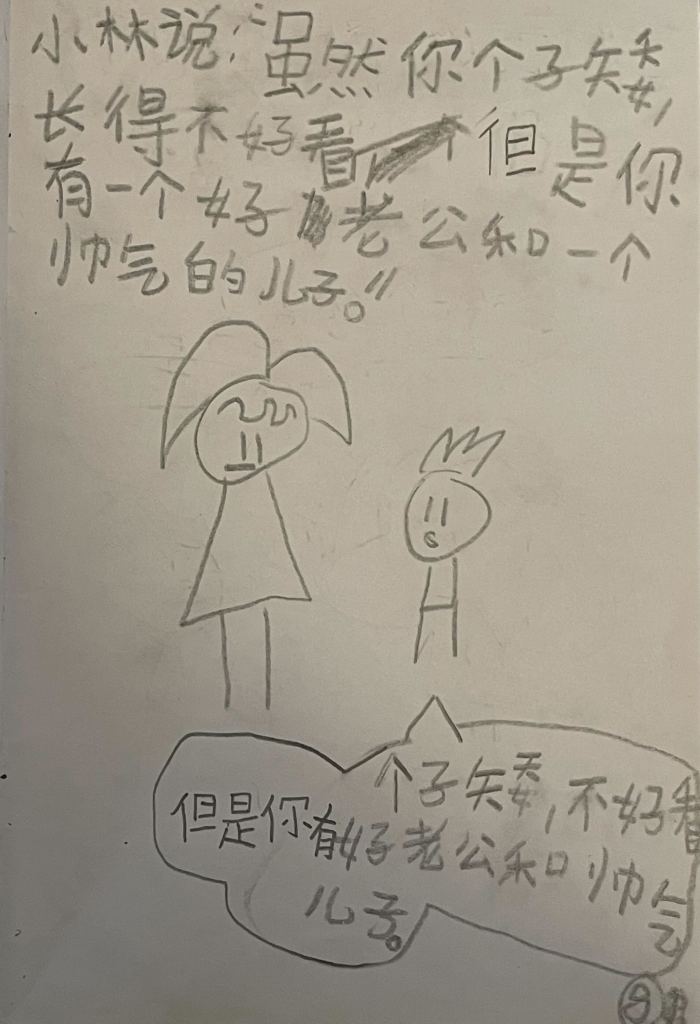 小林说:“虽然你个子矮,
长得不好看,但是你
有一个好老公和一个
帅气的儿子。”
个子矮,不好看
但是你有好老公和帅气
儿子。